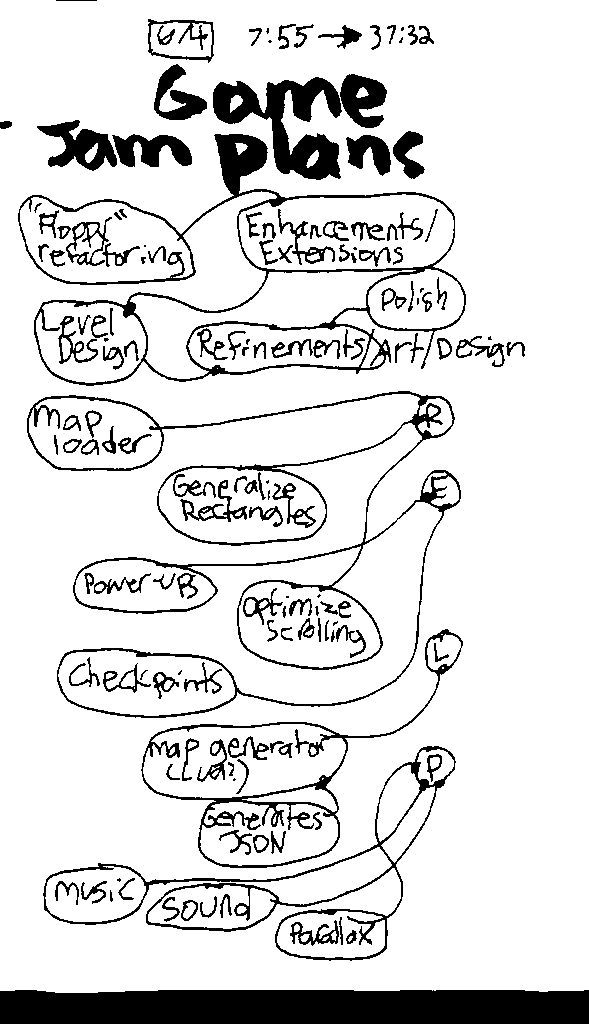 6/4 7:55 → 37:32
Game
Jam plans
"Floppy"
refactoring
Enhancements/
Extensions
Polish
Level
Design
Refinements/Art/Design
Map
loader
R
Generalize
Rectangles
E
Power-ups
Optimize
Scrolling
L
Checkpoints
Map generator
(Lua?)
P
Generates
JSON
Music
Sound
Parallax